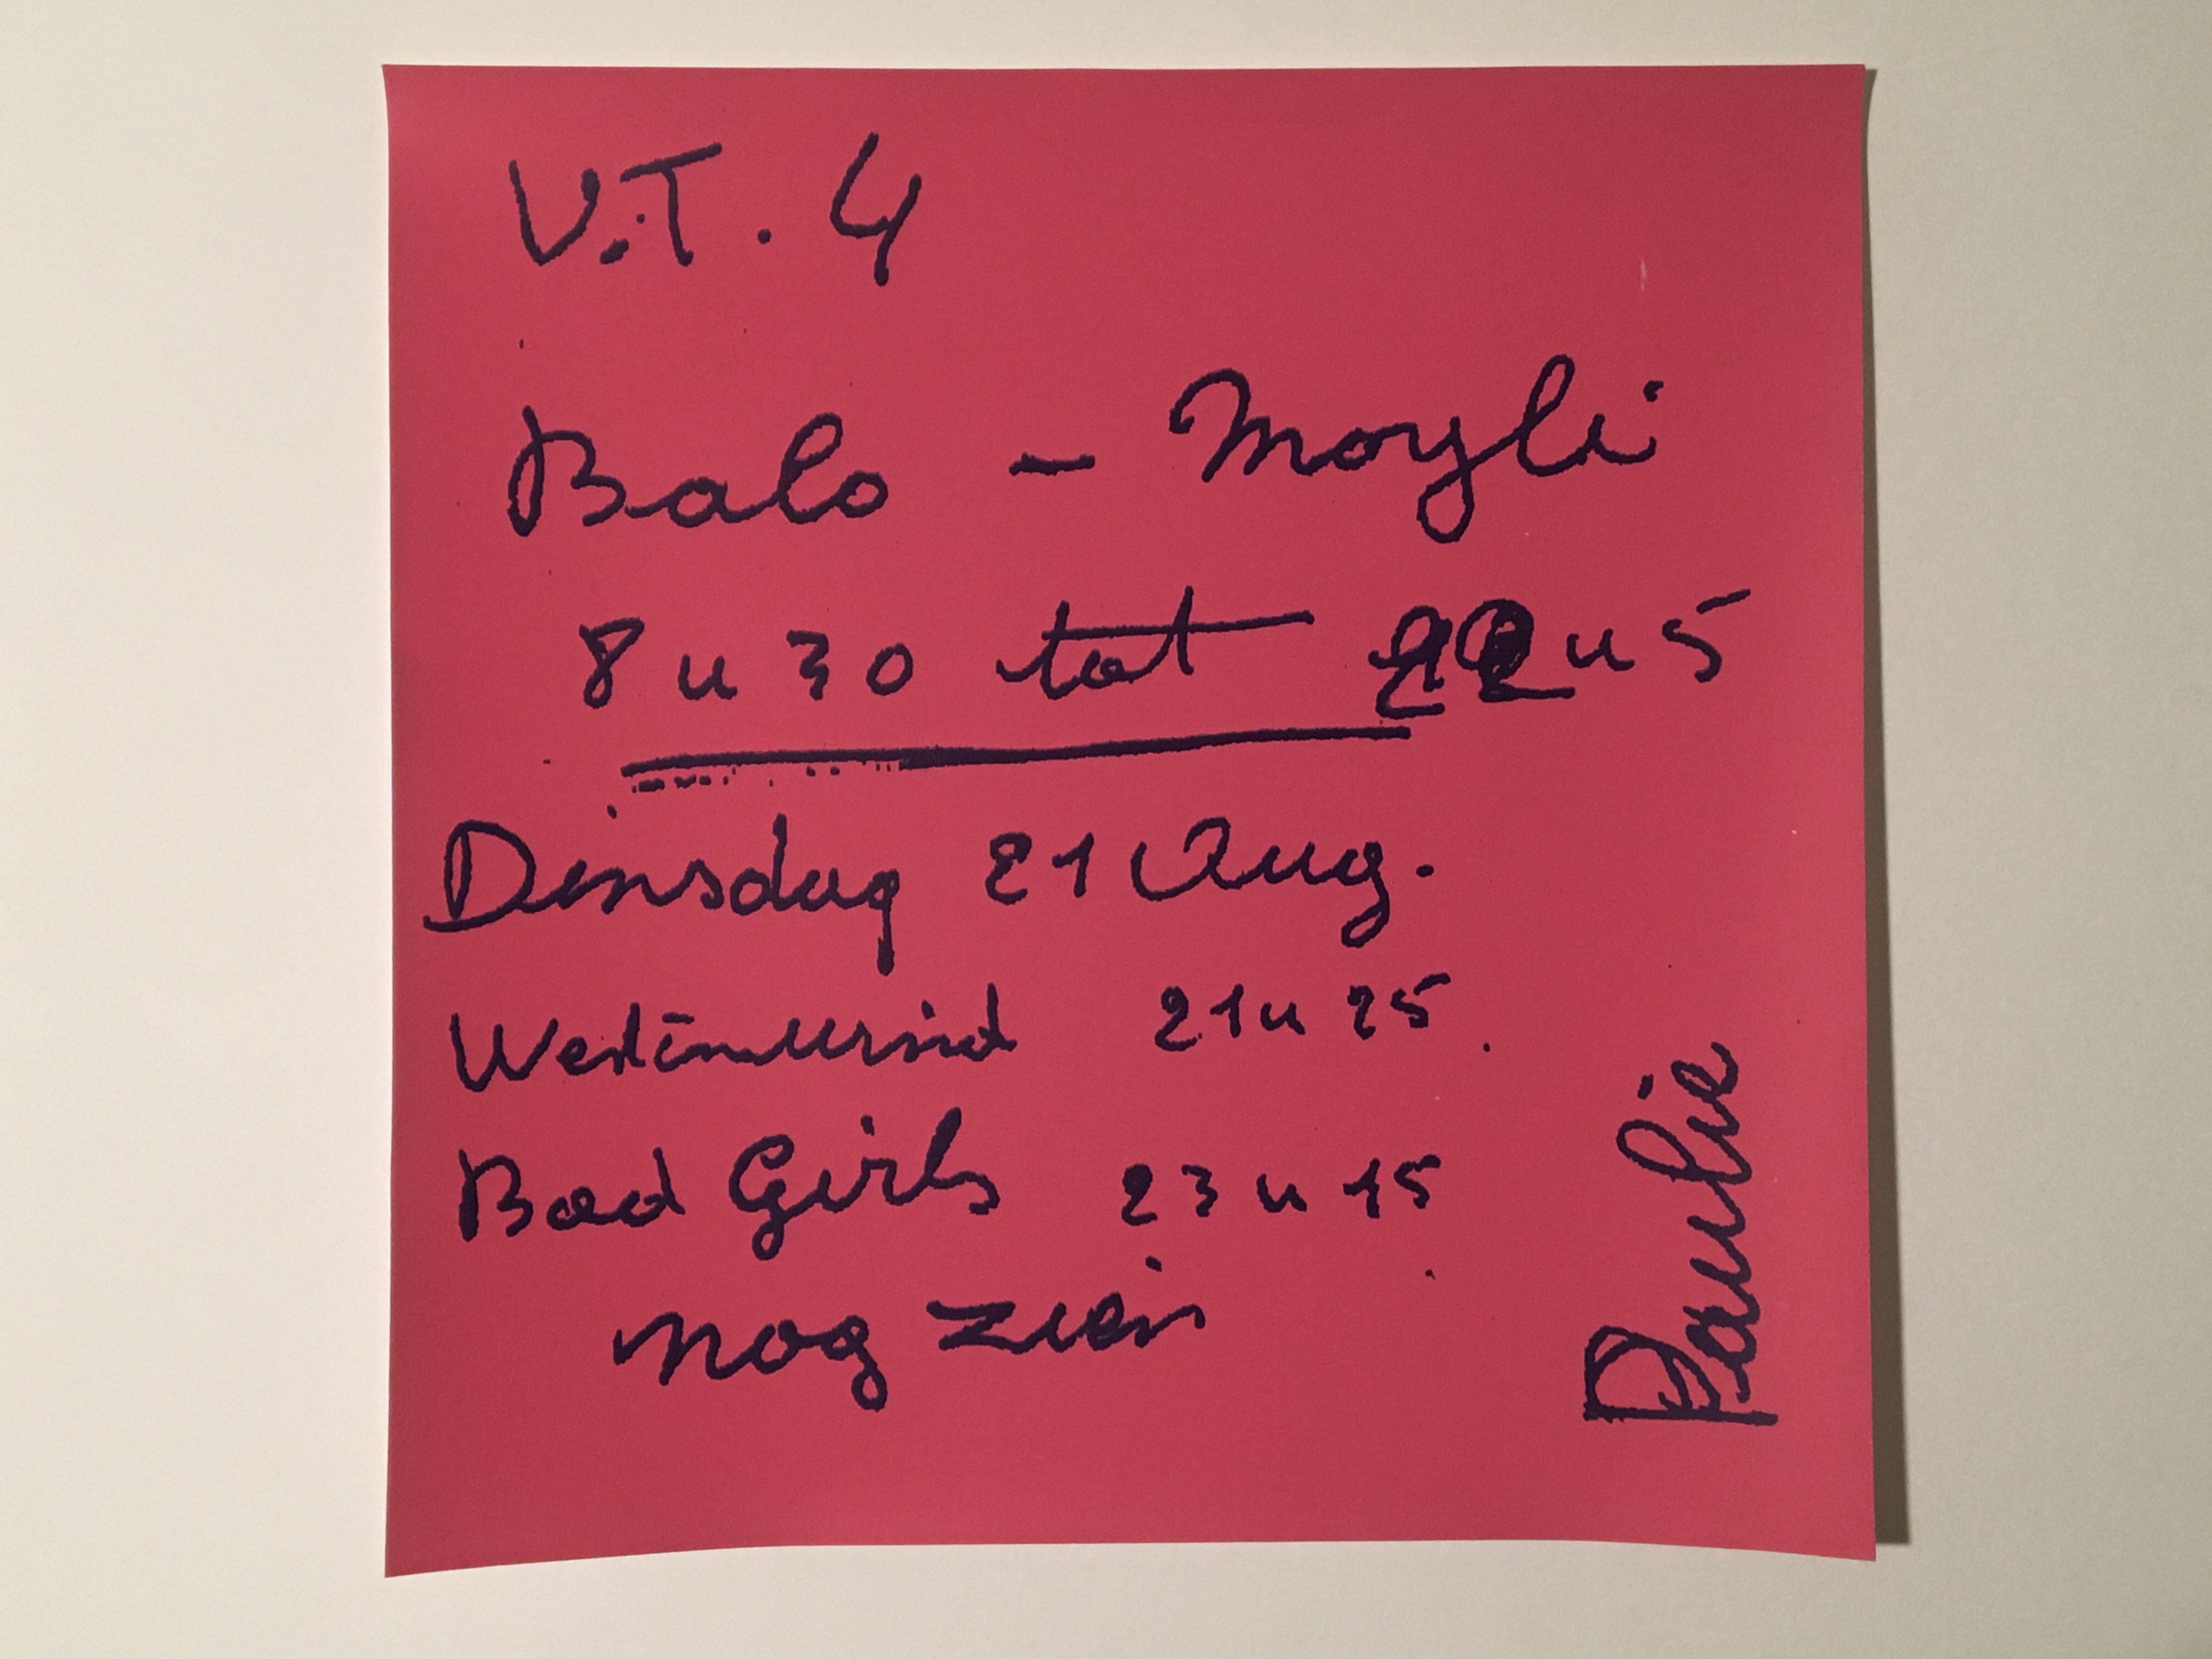 V.T. 4
Balo - Moyli
8 u 30 tot 22 u 5
Dinsdag 21 Aug.
21 u 25.
Bad Girls 23 u 15
nog zien
Paulie